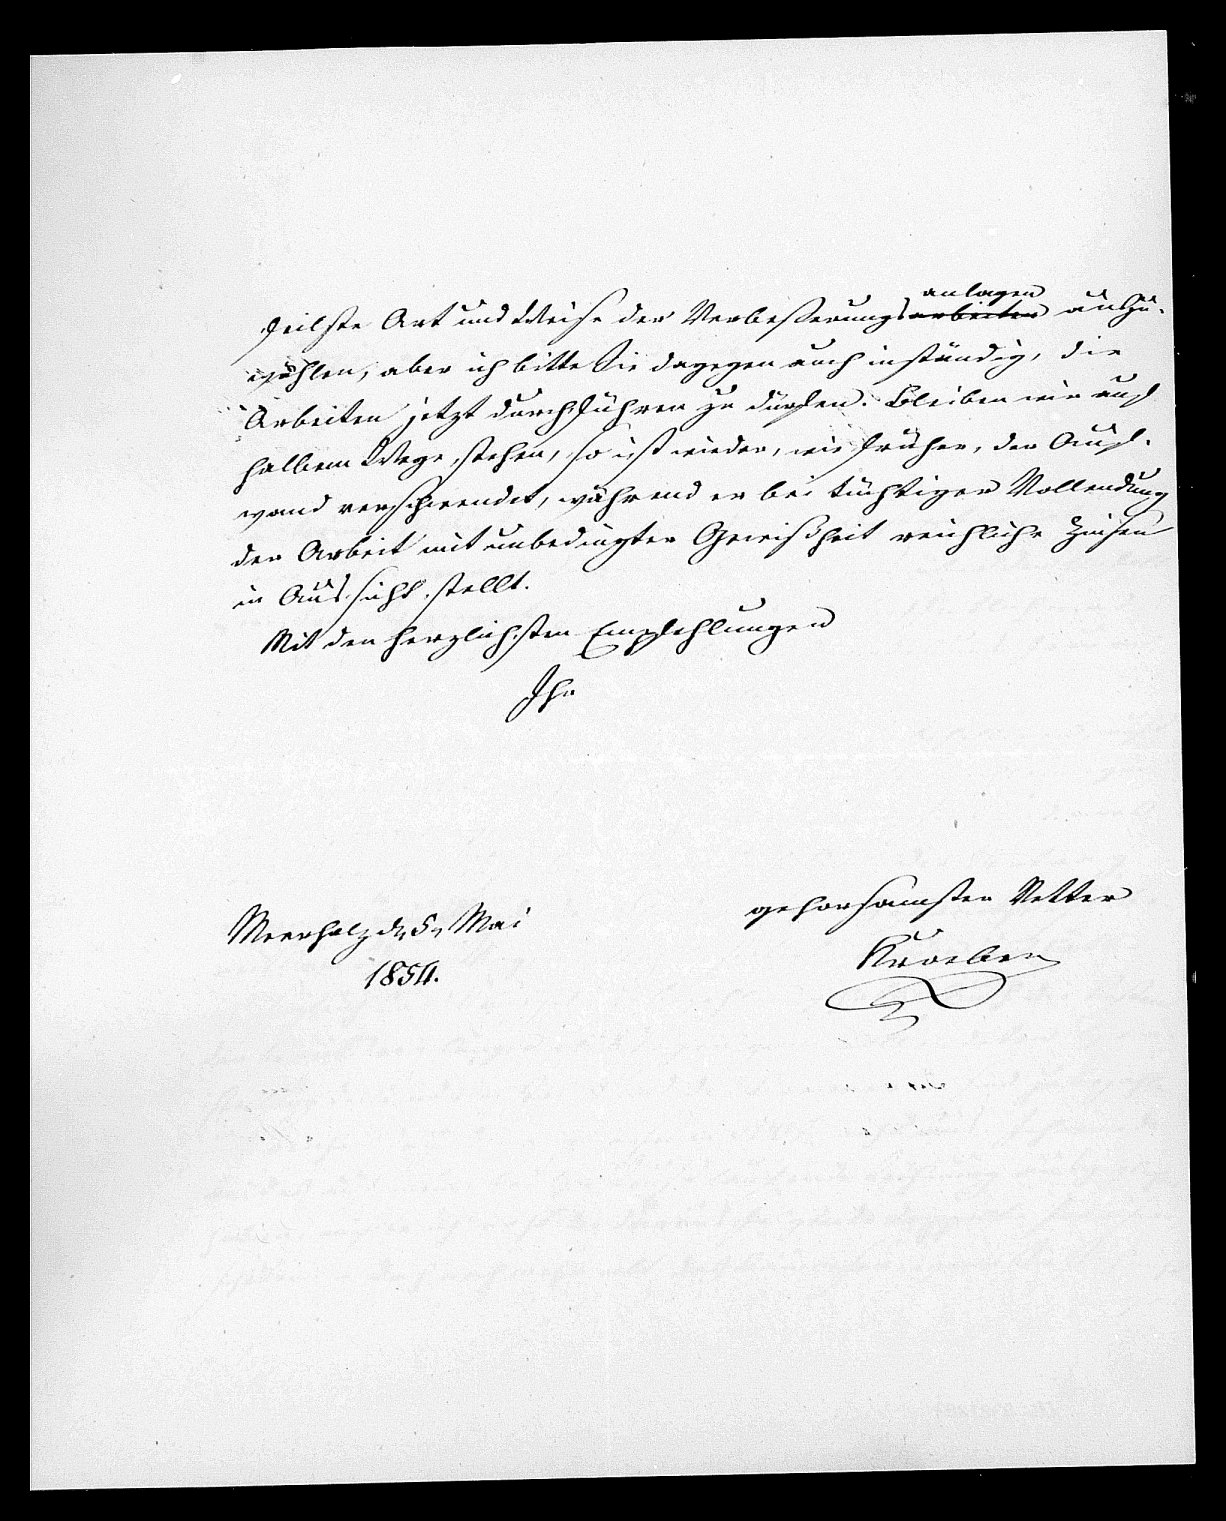 theilste Art und Weise der Verbeßerungsarbeiten anlagen auszu-
wählen, aber ich bitte Sie dagegen auch inständig, die
Arbeiten jetzt durchführen zu dürfen. Bleiben wir auf
halbem Wege stehen, so ist wieder, wie früher, der Auf-
wand verschwendet, während er bei tüchtiger Vollendung
der Arbeit mit unbedingter Gewißheit reichliche Zinsen
in Aussicht stellt.
Mit den herzlichsten Empfehlungen
Ihr
gehorsamster Vetter
Meerholz d. 5. Mai
1854.